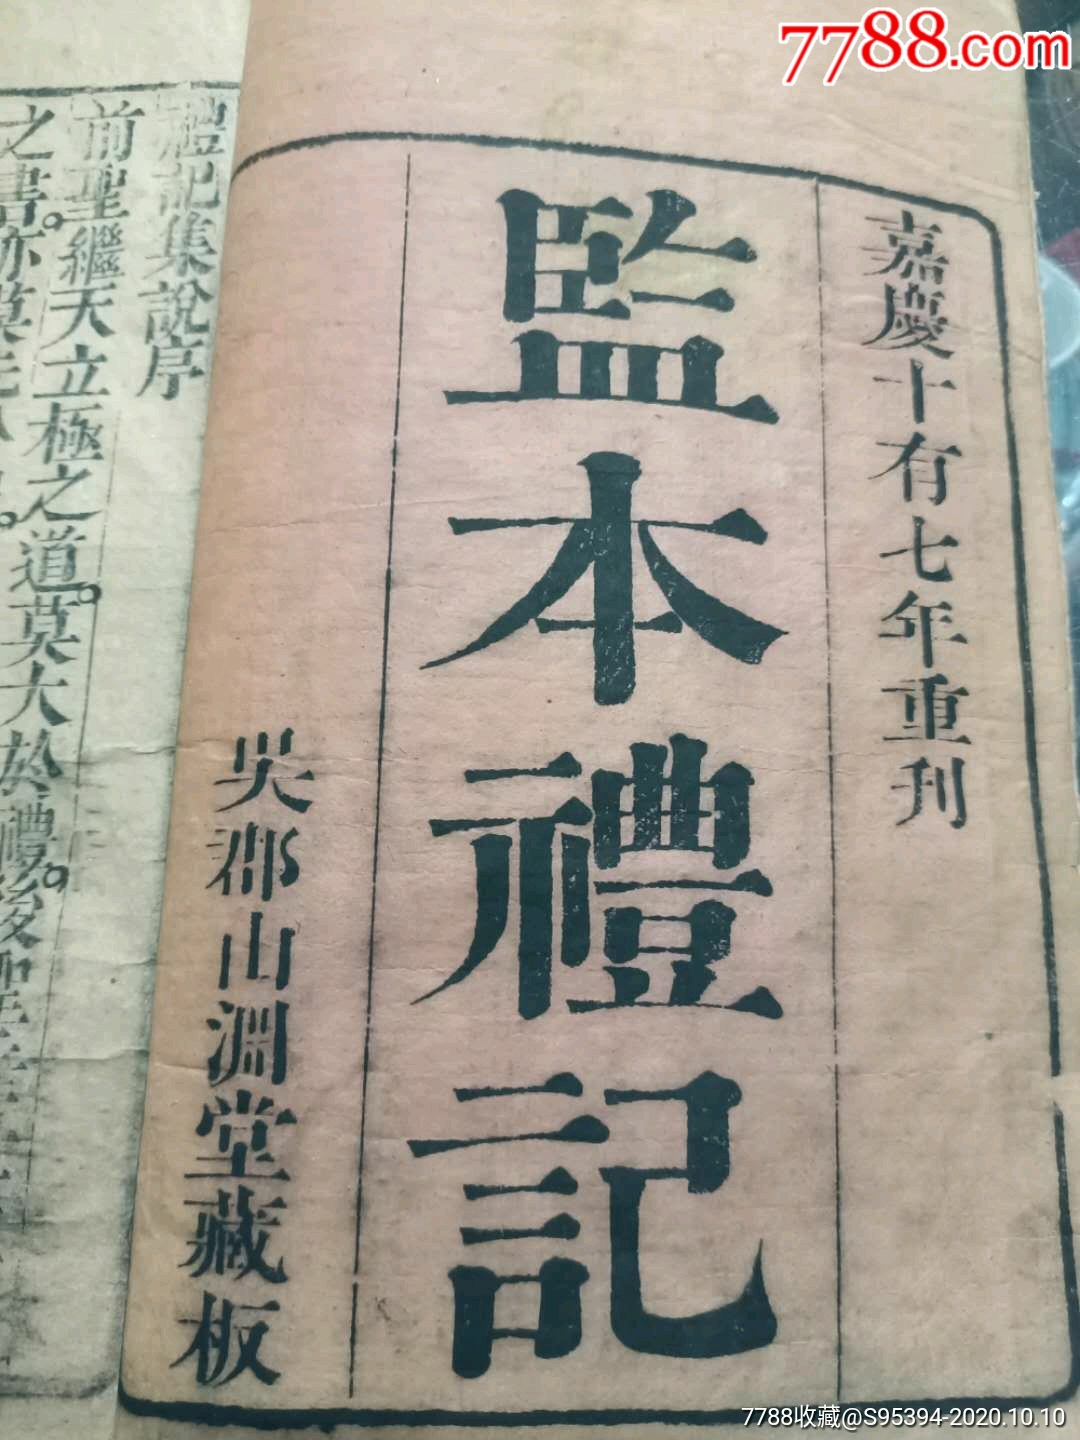 7788.com
嘉慶十有七年重刋
監本禮記
吳郡山淵堂藏板
禮記集說序
前聖繼天立極之道。莫大於禮。後聖
之書。亦莫先
7788收藏@S95394-2020.10.10